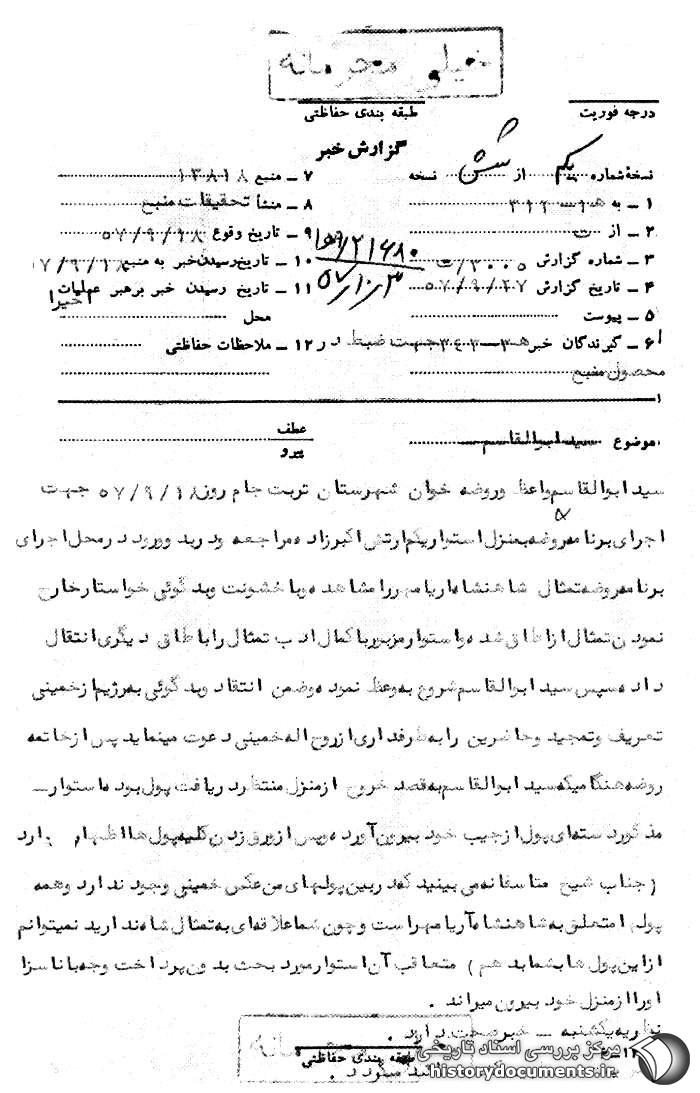 خیلی محرمانه
طبقه بندی حفاظتی
درجه فوریت
گزارش خبر
نسخهٔ شماره یکم از شش نسخه
۱ ـ به ۳۱۲
۲ ـ از ت
۳ ـ شماره گزارش ۳۰۰۵/ت
۴ ـ تاریخ گزارش ۵۷/۹/۲۷
۵ ـ پیوست
۶ ـ گیرندگان خبر جهت ضبط در
محصول منبع
۷ ـ منبع ۱۳۸۱۸
۸ ـ منشأ تحقیقات منبع
۹ ـ تاریخ وقوع ۵۷/۹/۱۸
۱۰ ـ تاریخ رسیدن خبر به منبع ۷/۹/۱۸
۱۱ ـ تاریخ رسیدن خبر برهبر عملیات اخیرا
محل
۱۲ ـ ملاحظات حفاظتی
۵۷/۱۰/۳
موضوع سید ابوالقاسم
عطف
پیرو
سید ابوالقاسم واعظ و روضه خوان شهرستان تربت جام روز ۵۷/۹/۱۸ جهت
اجرای برنامه روضه بمنزل استوار یکم ارتش اکبرزاده مراجعه و در بدو ورود در محل اجرای
برنامه روضه تمثال شاهنشاه اریامهر را مشاهده و با خشونت و بد گوئی خواستار خارج
نمودن تمثال از اطاق شده و استوار مزبور با کمال ادب تمثال را با طاق دیگری انتقال
داده سپس سید ابوالقاسم شروع به وعظ نموده وضمن انتقاد وبد گوئی به رژیم از خمینی
تعریف وتمجید وحاضرین را به طرفداری از روح اله خمینی دعوت مینماید پس از خاتمه
روضه هنگامیکه سید ابوالقاسم به قصد خروج از منزل منتظر دریافت پول بوده استوار ـ
مذکور دسته ای پول از جیب خود بیرون آورده وپس از ورق زدن کلیه پول ها اظهار دارد
( جناب شیخ متاسفانه می بینید که در بین پولهای من عکس خمینی وجود ندارد وهمه
پولها متعلق به شاهنشاه آریامهر است و چون شما علاقه ای به تمثال شاه ندارید نمیتوانم
از این پول ها بشما بدهم ) متعاقب آن استوار مورد بحث بدون پرداخت وجه با ناسزا
او را از منزل خود بیرون میراند .
نظریه یکشنبه ـ خبر صحت دارد .
خیلی محرمانه
طبقه بندی حفاظتی
مرکز بررسی اسناد تاریخی
historydocuments.ir